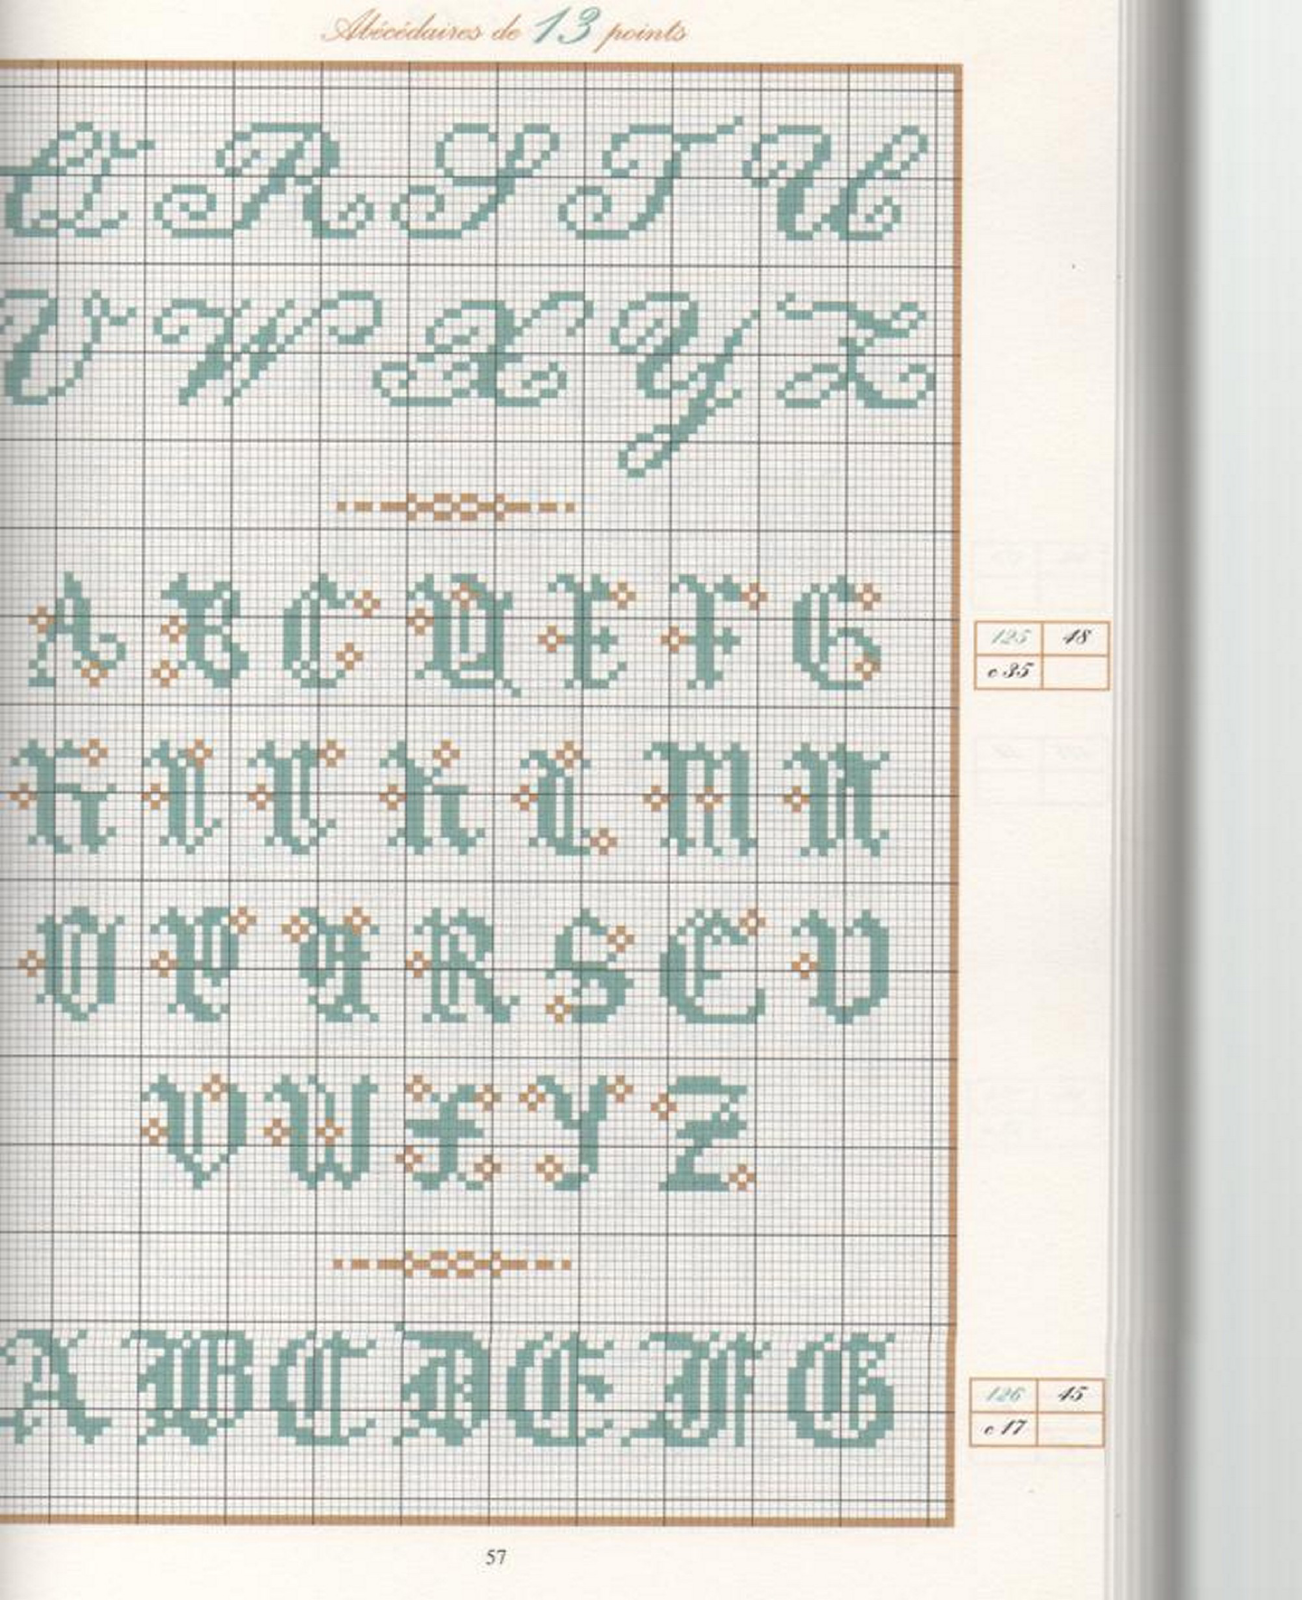 Abécédaires de 13 points
Q R S T U
V W X Y Z
A B C D E F G
125 48
c 35
H I J K L M N
O P Q R S T U
V W X Y Z
A B C D E F G
126 45
c 17
57